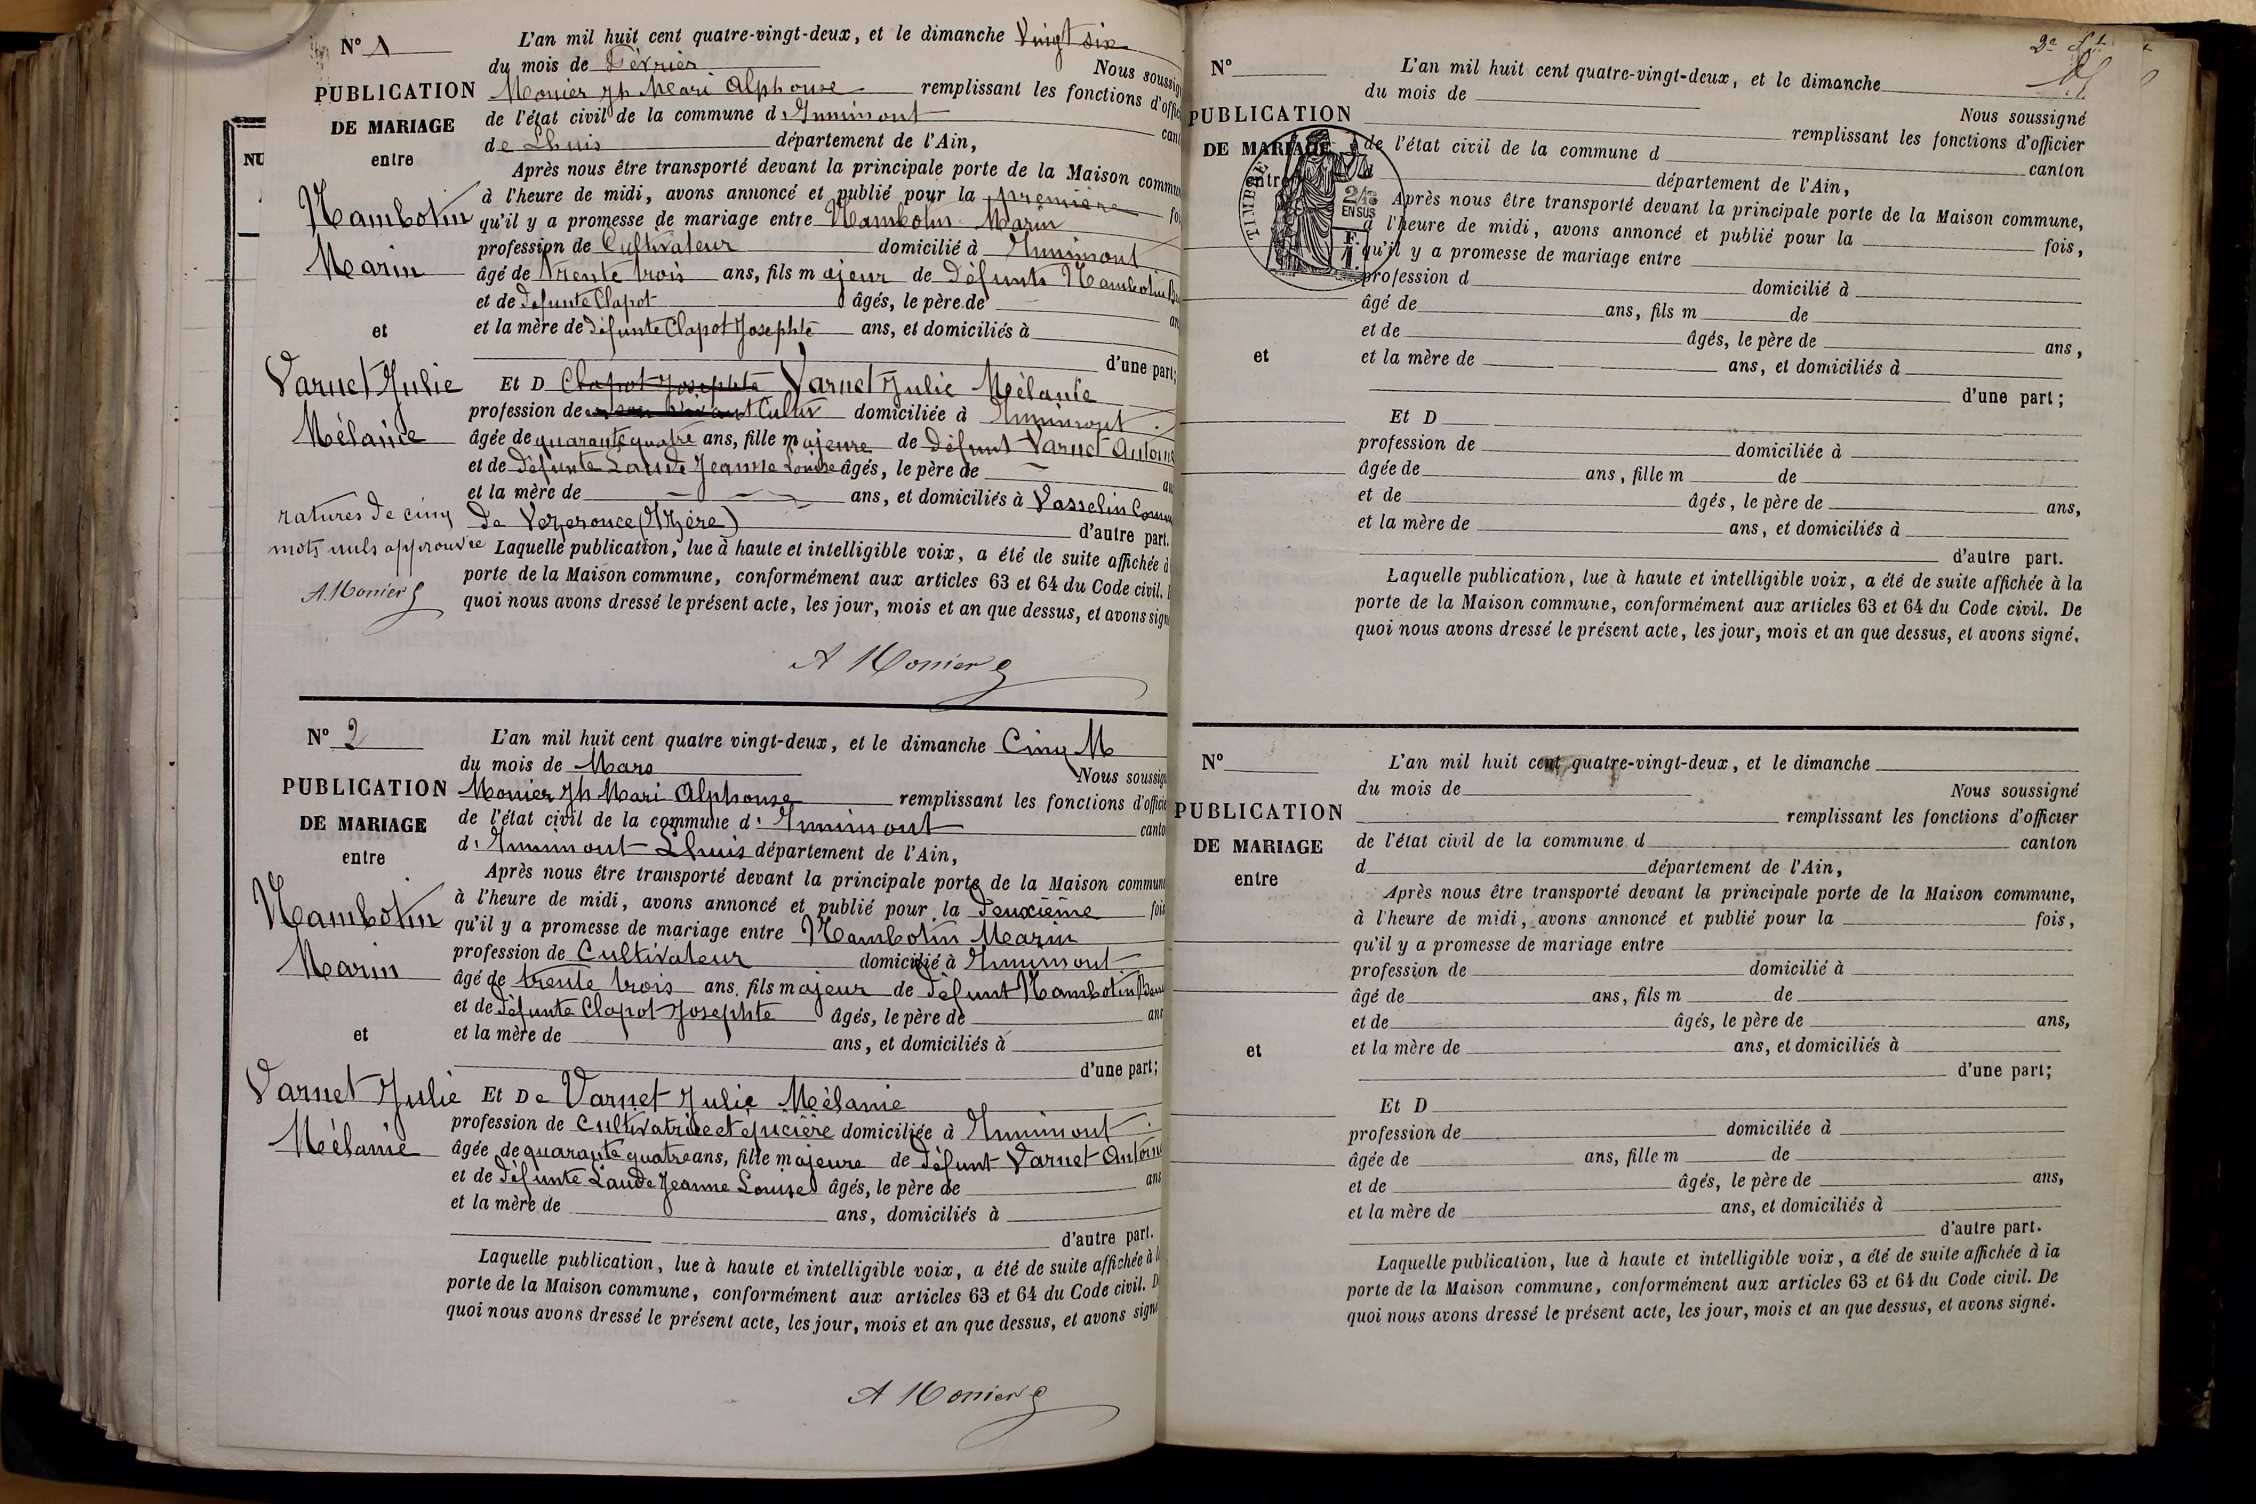 Nº 1
PUBLICATION
DE MARIAGE
entre
Nambotin
Marin
et
Varnet Julie
Mélanie
ratures de cinq
mots nuls approuvée
A. Monier
L'an mil huit cent quatre-vingt-deux, et le dimanche Vingt six
du mois de Février Nous soussig
Monier Jh Mari Alphonse remplissant les fonctions d'offic
de l'état civil de la commune d'Innimont can
de Lhuis département de l'Ain,
Après nous être transporté devant la principale porte de la Maison commun
à l'heure de midi, avons annoncé et publié pour la première fo
qu'il y a promesse de mariage entre Nambotin Marin
profession de Cultivateur domicilié à Innimont
âgé de trente trois ans, fils majeur de défunts Nambotin
et de défunte Clapot âgés, le père de an
et la mère de défunte Clapot Josephte ans, et domiciliés à
d'une part;
Et D Clapot Josephte Varnet Julie Mélanie
profession de Cultiv domiciliée à Innimont
âgée de quarante quatre ans, fille majeure de défunt Varnet Antoine
et de défunte Laude Jeanne Louise âgés, le père de an
et la mère de ans, et domiciliés à Vasselin Comm
de Vezeronce (Isère) d'autre part.
Laquelle publication, lue à haute et intelligible voix, a été de suite affichée à
porte de la Maison commune, conformément aux articles 63 et 64 du Code civil.
quoi nous avons dressé le présent acte, les jour, mois et an que dessus, et avons sign
A Monier
Nº 2
PUBLICATION
DE MARIAGE
entre
Nambotin
Marin
et
Varnet Julie
Mélanie
L'an mil huit cent quatre vingt-deux, et le dimanche Cinq M
du mois de Mars Nous soussig
Monier Jh Mari Alphonse remplissant les fonctions d'offici
de l'état civil de la commune d'Innimont canto
d'Innimont Lhuis département de l'Ain,
Après nous être transporté devant la principale porte de la Maison commun
à l'heure de midi, avons annoncé et publié pour la deuxième fois
qu'il y a promesse de mariage entre Nambotin Marin
profession de Cultivateur domicilié à Innimont
âgé de trente trois ans, fils majeur de défunt Nambotin Ben
et de défunte Clapot Josephte âgés, le père de ans
et la mère de ans, et domiciliés à
d'une part;
Et De Varnet Julie Mélanie
profession de Cultivatrice et épicière domiciliée à Innimont
âgée de quarante quatre ans, fille majeure de défunt Varnet Antoine
et de défunte Laude Jeanne Louise âgés, le père de ans
et la mère de ans, domiciliés à
d'autre part.
Laquelle publication, lue à haute et intelligible voix, a été de suite affichée à l
porte de la Maison commune, conformément aux articles 63 et 64 du Code civil. D
quoi nous avons dressé le présent acte, les jour, mois et an que dessus, et avons sign
A Monier
NU
Nº
PUBLICATION
DE MARIAGE
entre
et
TIMBRE
2/10
EN SUS
F.
1.
L'an mil huit cent quatre-vingt-deux, et le dimanche
du mois de Nous soussigné
remplissant les fonctions d'officier
de l'état civil de la commune d canton
département de l'Ain,
Après nous être transporté devant la principale porte de la Maison commune,
à l'heure de midi, avons annoncé et publié pour la fois,
qu'il y a promesse de mariage entre
profession d domicilié à
âgé de ans, fils m de
et de âgés, le père de ans,
et la mère de ans, et domiciliés à
d'une part;
Et D
profession de domiciliée à
âgée de ans, fille m de
et de âgés, le père de ans,
et la mère de ans, et domiciliés à
d'autre part.
Laquelle publication, lue à haute et intelligible voix, a été de suite affichée à la
porte de la Maison commune, conformément aux articles 63 et 64 du Code civil. De
quoi nous avons dressé le présent acte, les jour, mois et an que dessus, et avons signé.
Nº
PUBLICATION
DE MARIAGE
entre
et
L'an mil huit cent quatre-vingt-deux, et le dimanche
du mois de Nous soussigné
remplissant les fonctions d'officier
de l'état civil de la commune d canton
d département de l'Ain,
Après nous être transporté devant la principale porte de la Maison commune,
à l'heure de midi, avons annoncé et publié pour la fois,
qu'il y a promesse de mariage entre
profession de domicilié à
âgé de ans, fils m de
et de âgés, le père de ans,
et la mère de ans, et domiciliés à
d'une part;
Et D
profession de domiciliée à
âgée de ans, fille m de
et de âgés, le père de ans,
et la mère de ans, et domiciliés à
d'autre part.
Laquelle publication, lue à haute et intelligible voix, a été de suite affichée à la
porte de la Maison commune, conformément aux articles 63 et 64 du Code civil. De
quoi nous avons dressé le présent acte, les jour, mois et an que dessus, et avons signé.